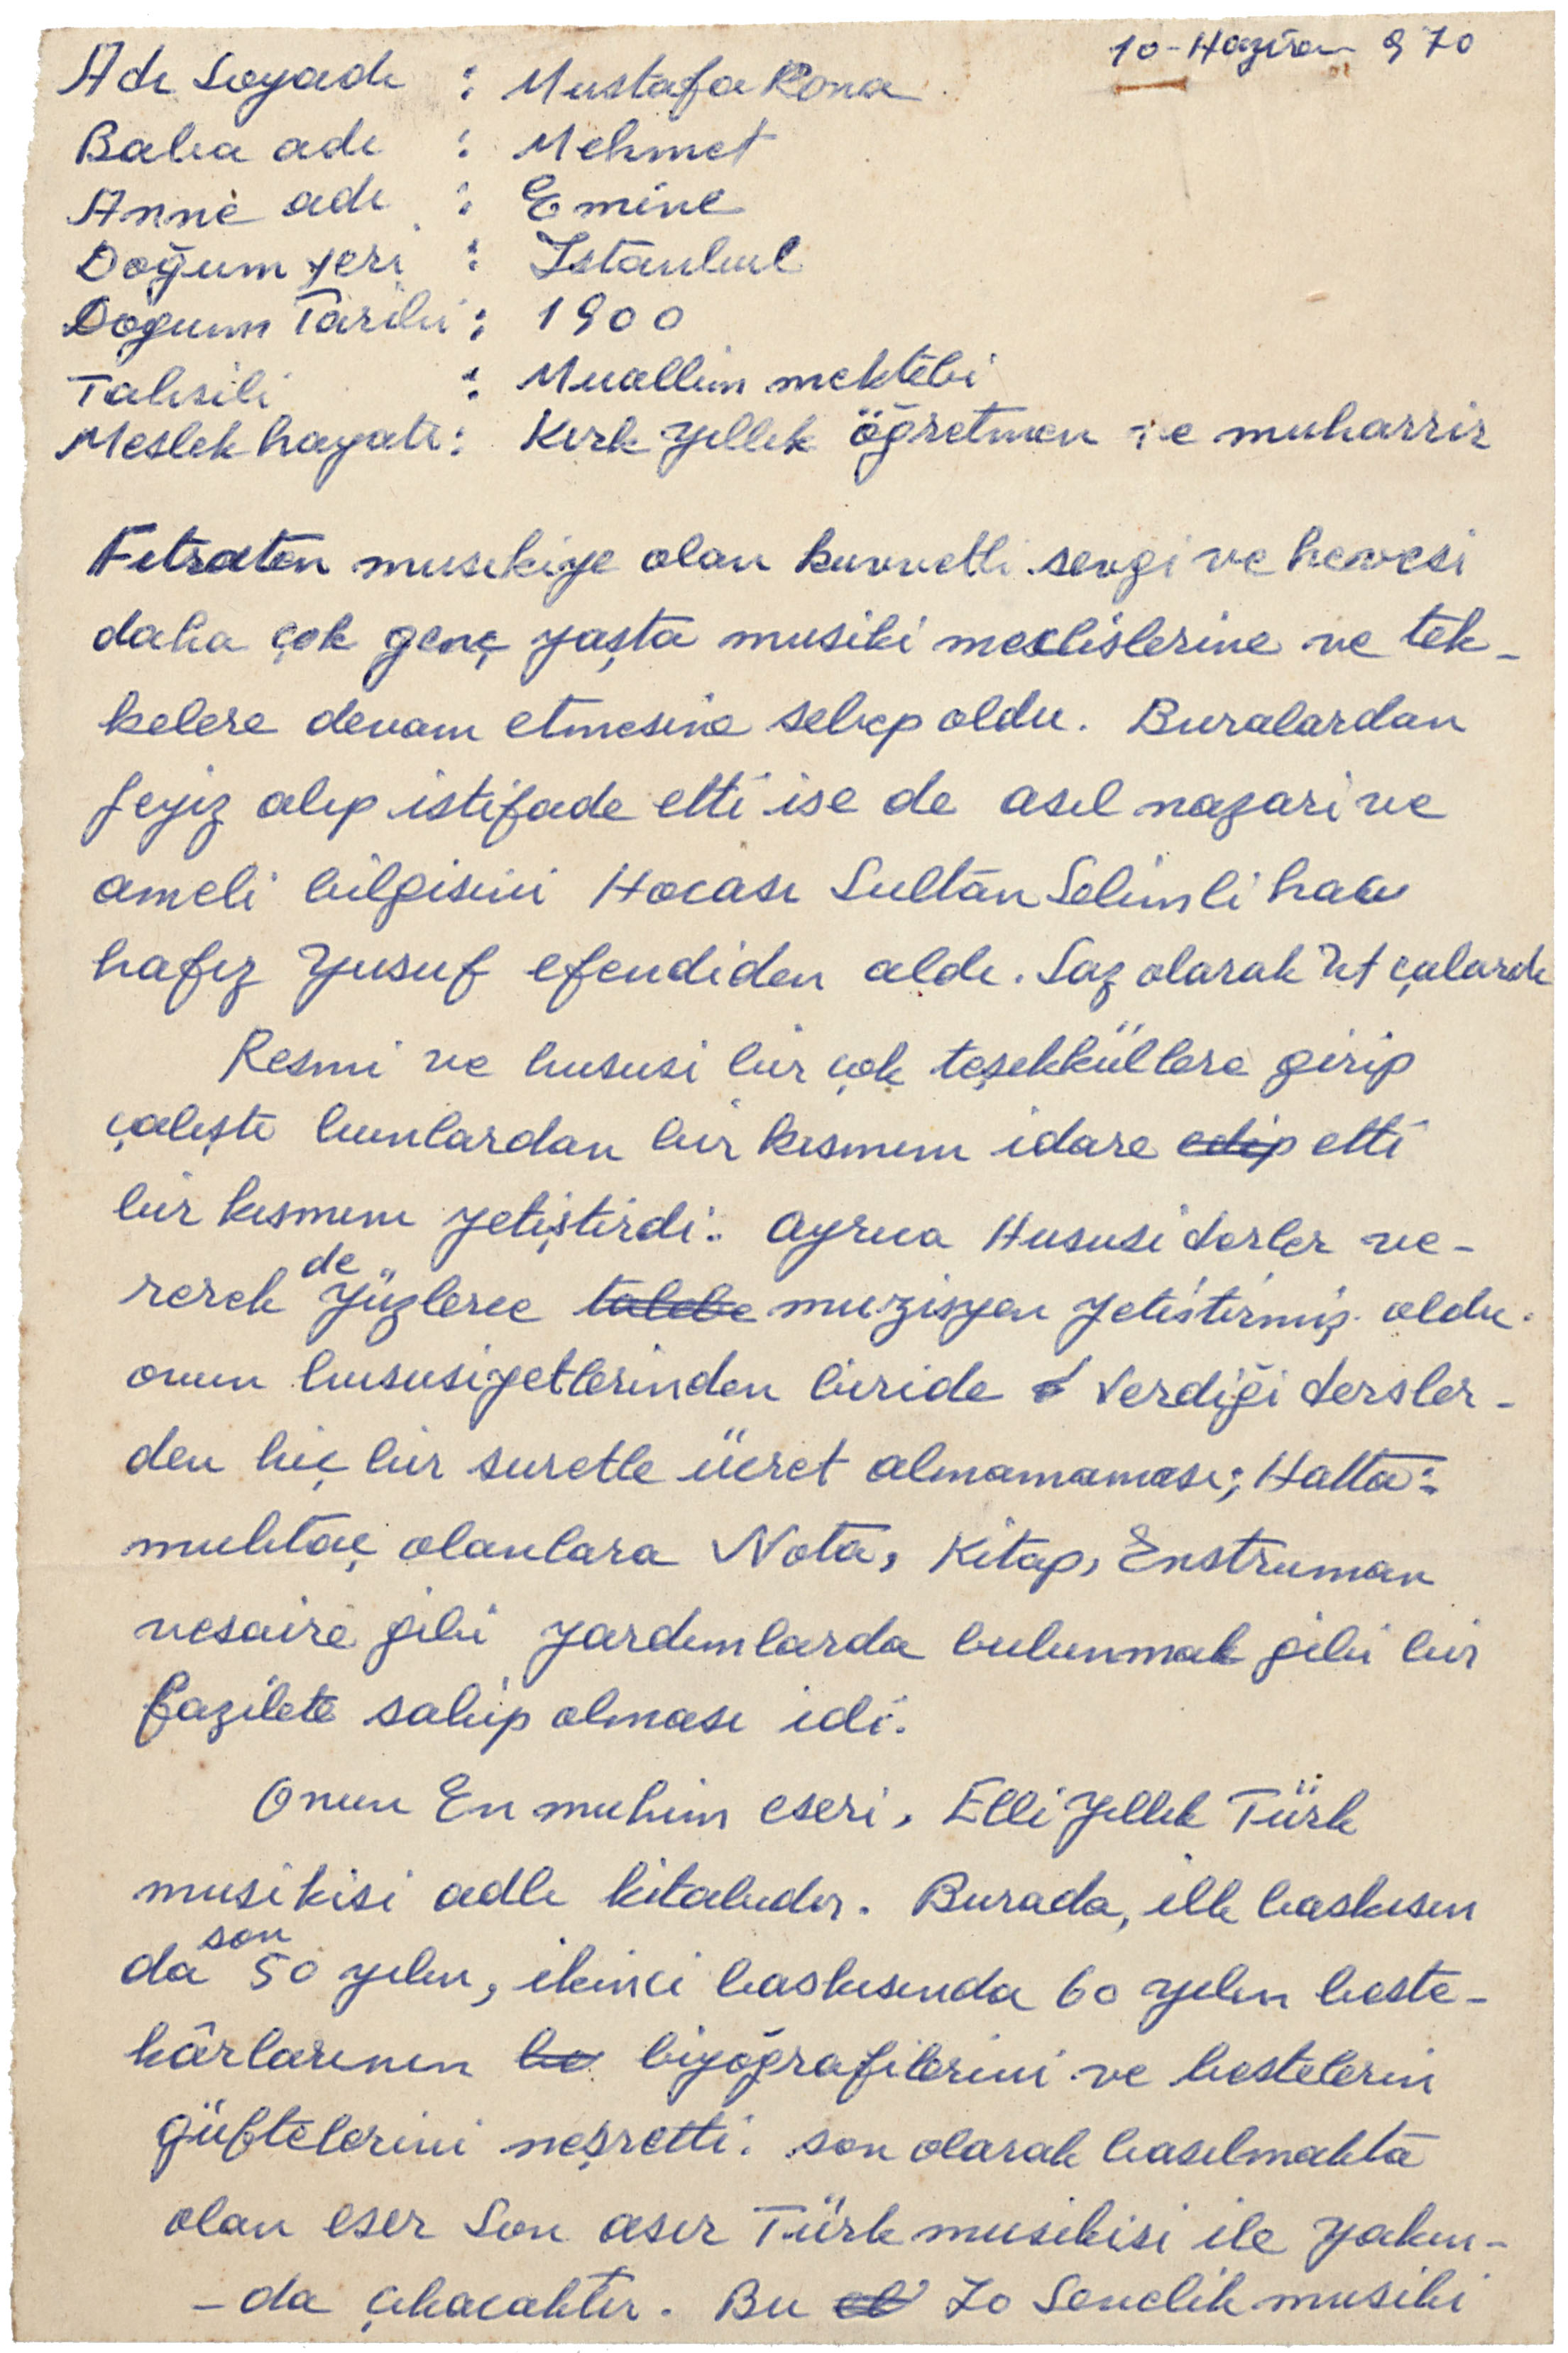 10-Haziran 970
Adı Soyadı : Mustafa Rona
Baba adı : Mehmet
Anne adı : Emine
Doğum yeri : İstanbul
Dogum Tarihi : 1900
Tahsili : Muallim mektebi
Meslek hayatı : Kırk yıllık öğretmen ve muharrir
Fıtraten musıkiye olan kuvvetli sevgi ve hevesi
daha çok genç yaşta musiki meclislerine ve tek-
kelere devam etmesine sebep oldu. Buralardan
feyiz alıp istifade etti ise de asıl nazari ve
ameli bilgisini Hocası Sultan Selimli hacı
hafız Yusuf efendiden aldı. Saz olarak ut çalardı
Resmi ve hususi bir çok teşekküllere girip
çalıştı bunlardan bir kısmını idare edip etti
bir kısmını yetiştirdi. Ayrıca Hususi dersler ve-
rerek de yüzlerce talebe muzisyen yetiştirmiş oldu.
onun hususiyetlerinden biride verdiği dersler-
den hiç bir suretle ücret almamaması; Hatta:
muhtaç olanlara Nota, Kitap, Enstruman
vesaire gibi yardımlarda bulunmak gibi bir
fazilete sahip olması idi.
Onun En muhim eseri, Elli yıllık Türk
musikisi adlı kitabıdır. Burada, ilk baskısın
da son 50 yılın, ikinci baskısında 60 yılın beste-
kârlarının be biyoğrafilerini ve bestelerin
güftelerini neşretti. son olarak basılmakta
olan eser Son asır Türk musikisi ile yakın-
-da çıkacaktır. Bu 70 Senelik musiki